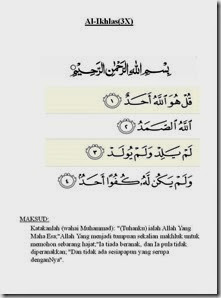 Al-Ikhlas(3X)
بِسْمِ اللَّهِ الرَّحْمَٰنِ الرَّحِيمِ
قُلْ هُوَ اللَّهُ أَحَدٌ ١
اللَّهُ الصَّمَدُ ٢
لَمْ يَلِدْ وَلَمْ يُولَدْ ٣
وَلَمْ يَكُن لَّهُ كُفُوًا أَحَدٌ ٤
MAKSUD:
Katakanlah (wahai Muhammad): "(Tuhanku) ialah Allah Yang
Maha Esa;"Allah Yang menjadi tumpuan sekalian makhluk untuk
memohon sebarang hajat;"Ia tiada beranak, dan Ia pula tidak
diperanakkan; "Dan tidak ada sesiapapun yang serupa
denganNya".